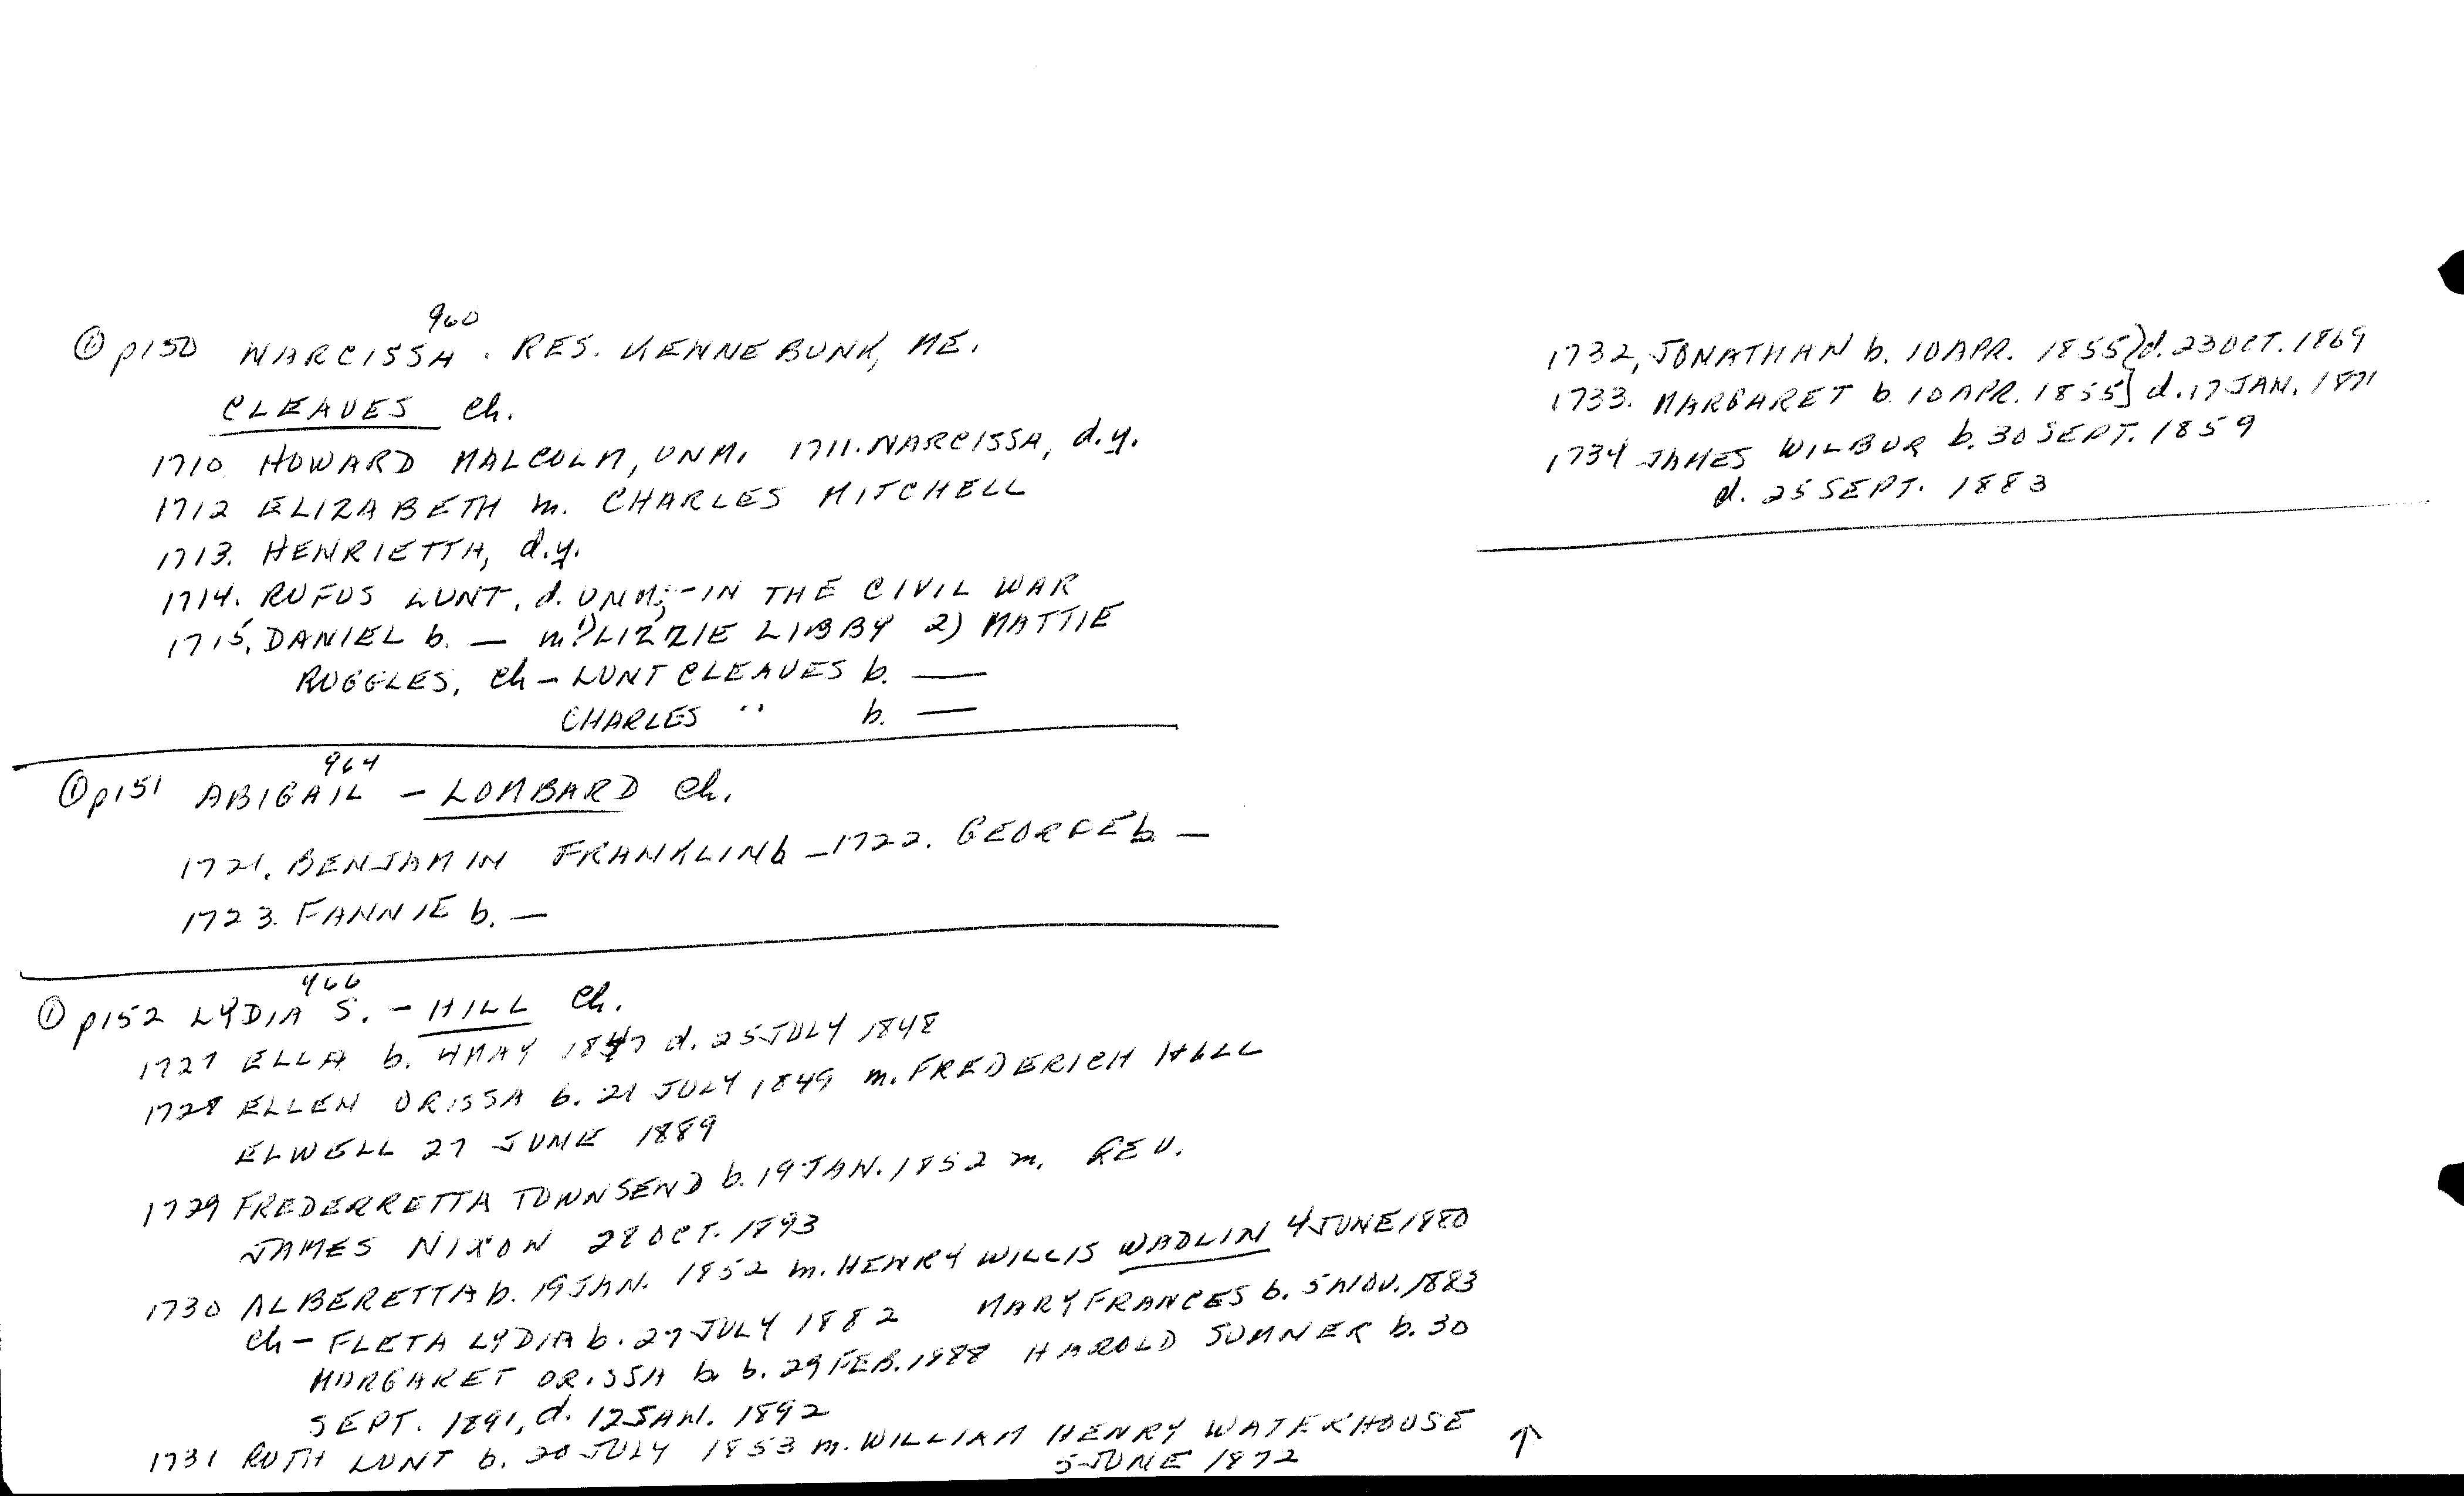 960
① p150 NARCISSA. RES. KENNEBUNK, ME.
CLEAVES ch.
1710. HOWARD MALCOLM, UNM. 1711. NARCISSA, d.y.
1712 ELIZABETH m. CHARLES MITCHELL
1713. HENRIETTA, d.y.
1714. RUFUS LUNT, d. UNM; - IN THE CIVIL WAR
1715. DANIEL b. — m. 1) LIZZIE LIBBY 2) MATTIE
RUGGLES, ch - LUNT CLEAVES b. —
CHARLES " b. —
964
① p151 ABIGAIL - LOMBARD ch.
1721. BENJAMIN FRANKLIN b — 1722. GEORGE b —
1723. FANNIE b. —
966
① p152 LYDIA S. - HILL ch.
1727 ELLA b. 4 MAY 1847 d. 25 JULY 1848
1728 ELLEN ORISSA b. 21 JULY 1849 m. FREDERICH HILL
ELWELL 27 JUNE 1889
1729 FREDERRETTA TOWNSEND b. 19 JAN. 1852 m. REV.
JAMES NIXON 28 OCT. 1893
1730 ALBERETTA b. 19 JAN. 1852 m. HENRY WILLIS WADLIN 4 JUNE 1880
ch - FLETA LYDIA b. 27 JULY 1882 MARY FRANCES b. 5 NOV. 1883
MARGARET ORISSA b. b. 29 FEB. 1888 HAROLD SUMNER b. 30
SEPT. 1891, d. 12 JAN. 1892
1731 RUTH LUNT b. 20 JULY 1853 m. WILLIAM HENRY WATERHOUSE ↑
5 JUNE 1872
1732, JONATHAN b. 10 APR. 1855} d. 23 OCT. 1869
1733. MARGARET b. 10 APR. 1855} d. 17 JAN. 1871
1734 JAMES WILBUR b. 30 SEPT. 1859
d. 25 SEPT. 1883